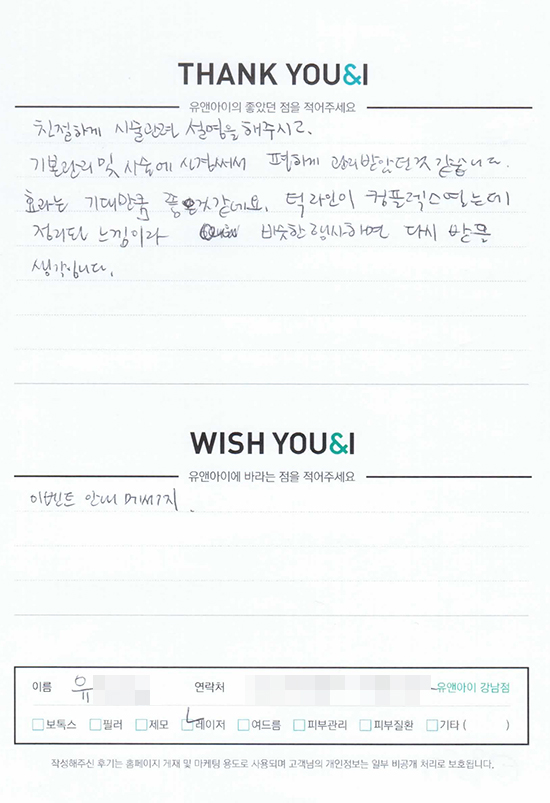 THANK YOU&I
유앤아이의 좋았던 점을 적어주세요
친절하게 시술관련 설명을 해주시고.
기본관리 및 시술에 신경써서 편하게 관리받았던것 같습니다.
효과는 기대만큼 좋은것같네요. 턱라인이 컴플렉스였는데
정리된 느낌이라 비슷한 행사하면 다시 받을
생각입니다.
WISH YOU&I
유앤아이에 바라는 점을 적어주세요
이벤트 안내 메세지.
이름 유 연락처 유앤아이 강남점
보톡스 필러 제모 레이저 여드름 피부관리 피부질환 기타 ( )
작성해주신 후기는 홈페이지 게재 및 마케팅 용도로 사용되며 고객님의 개인정보는 일부 비공개 처리로 보호됩니다.